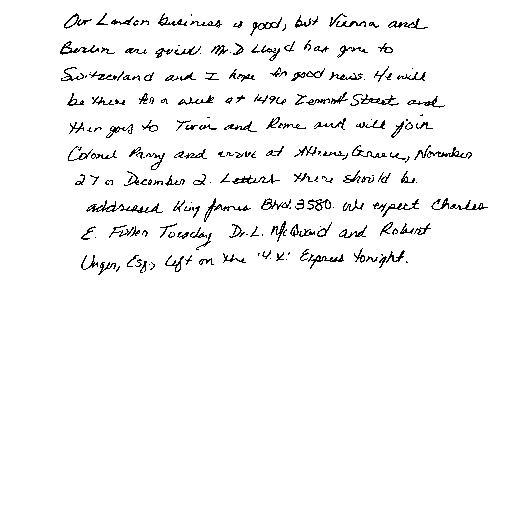 Our London business is good, but Vienna and
Berlin are quiet. Mr. D Lloyd has gone to
Switzerland and I hope for good news. He will
be there for a week at 1496 Zermott Street and
then goes to Turin and Rome and will join
Colonel Parry and arrive at Athens, Greece, November
27 or December 2. Letters there should be
addressed King James Blvd. 3580. We expect Charles
E. Fuller Tuesday Dr. L. McQuaid and Robert
Unger, Esq., left on the "Y.X." Express tonight.